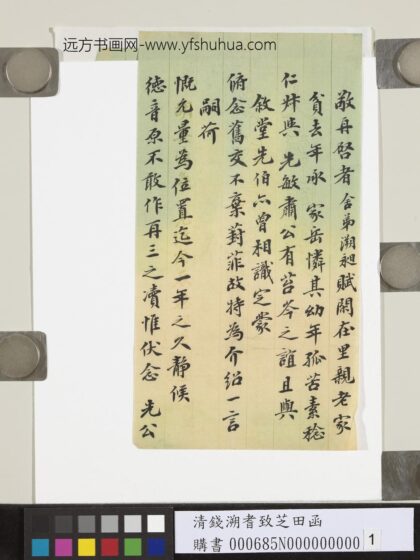 远方书画网-www.yfshuhua.com
敬再啓者舍弟溯昶賦閒在里親老家
貧去年承 家岳憐其幼年孤苦素稔
仁丈與 先敏肅公有苔岑之誼且與
敘堂先伯亦曾相識定蒙
俯念舊交不棄葑菲故特為介紹一言
嗣荷
慨允量為位置迄今一年之久靜候
德音原不敢作再三之瀆惟伏念 先公
清錢溯耆致芝田函
購書 000685N000000000
1